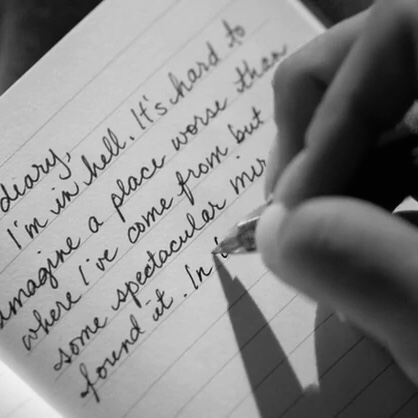 diary,
I'm in hell. It's hard to
imagine a place worse than
where I've come from but
some spectacular mir
found it. In